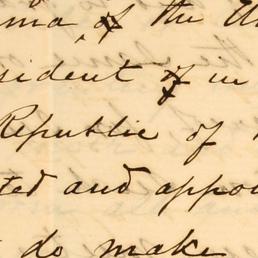 ma of the U
sident of in
Republic of
ted and appoi
do make